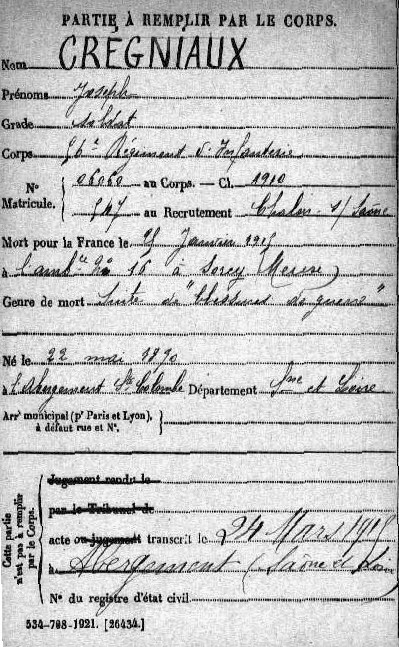 PARTIE À REMPLIR PAR LE CORPS.
Nom CRÉGNIAUX
Prénoms Joseph
Grade soldat
Corps 56e Régiment d'Infanterie
N° Matricule. { 06060 au Corps. — Cl. 1910
547 au Recrutement Chalon s/ Saône
Mort pour la France le 25 Janvier 1915
à l'amb ce No 16 à Sorcy (Meuse)
Genre de mort Suite de "blessures de guerre"
Né le 22 mai 1890
à l'Abergement Ste Colombe Département Sne et Loire
Arrt municipal (pr Paris et Lyon), à défaut rue et N°. }
Cette partie n'est pas à remplir par le Corps.
Jugement rendu le
par le Tribunal de
acte ou jugement transcrit le 24 Mars 1915
à Abergement (Saône et Loire)
N° du registre d'état civil
534-708-1921. [26434.]